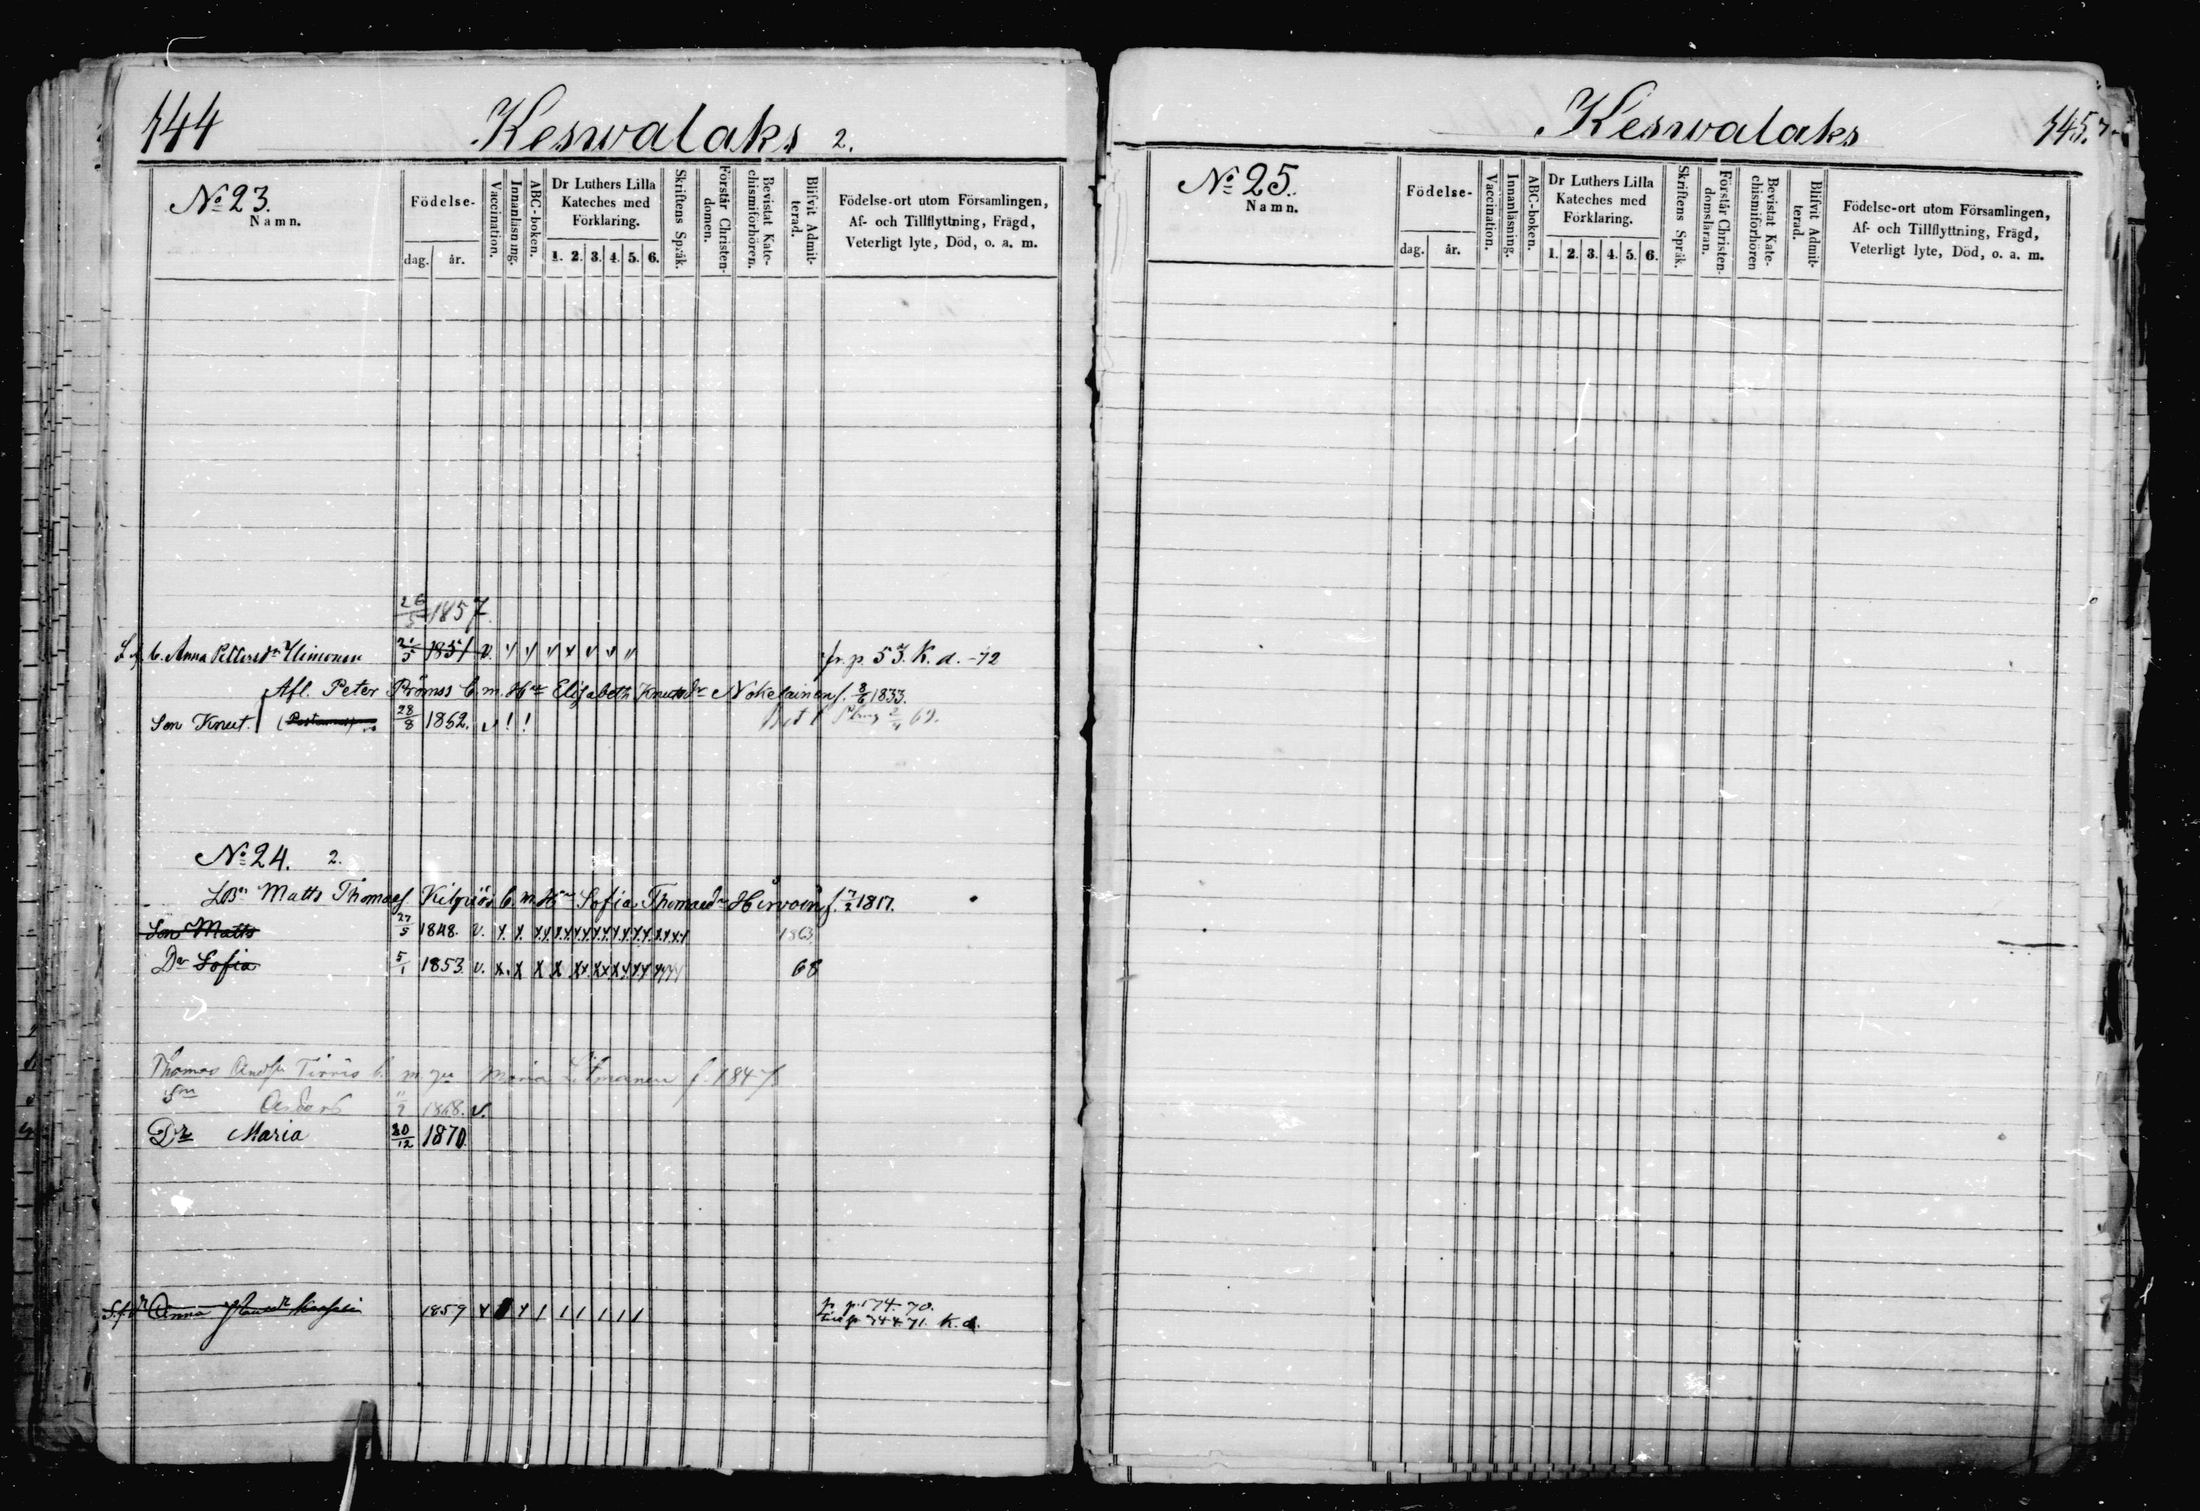 144
Keswalaks 2.
No 23.
Namn.
Födelse-
dag. år.
Vaccination.
Innanläsning.
ABC-boken.
Dr Luthers Lilla
Kateches med
Förklaring.
1. 2. 3. 4. 5. 6.
Skriftens Språk.
Förstår Christen-
domen.
Bevistat Kate-
chismiförhören.
Blifvit Admit-
terad.
Födelse-ort utom Församlingen,
Af- och Tillflyttning, Frägd,
Veterligt lyte, Död, o. a. m.
26/5 1857.
Anna Pettersdr 21/5 1851 v. fr. p. 53. K. d. -72
Afl. Peter Prömss b. m. Hu Elisabeth Knutsdr Nokelainen f. 8/6 1833.
Son Knut. 28/8 1862. v ! !
No 24. 2.
Matts Thomasf. b. m. Hu Sofia Thomasdr Hirvoin f. 7/2 1817.
Son Matts 27/5 1848. v. x x xx xx xx xx xx xx xxxx 1863
Dr Sofia 5/1 1853. v. x. x x x xx xx xx xx 68
Thomas Andsn b. m. Maria f. 1847
Sn Anders 11/2 1868. v.
Dr Maria 30/12 1870.
Anna 1859 p. 174. 70.
744. 71. K. d.
Keswalaks
145.
No 25.
Namn.
Födelse-
dag. år.
Vaccination.
Innanläsning.
ABC-boken.
Dr Luthers Lilla
Kateches med
Förklaring.
1. 2. 3. 4. 5. 6.
Skriftens Språk.
Förstår Christen-
domsläran.
Bevistat Kate-
chismiförhören
Blifvit Admit-
terad.
Födelse-ort utom Församlingen,
Af- och Tillflyttning, Frägd,
Veterligt lyte, Död, o. a. m.